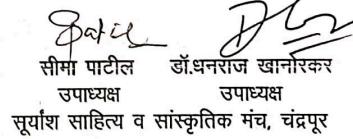 सीमा पाटील डॉ.धनराज खानोरकर
उपाध्यक्ष उपाध्यक्ष
सूर्यांश साहित्य व सांस्कृतिक मंच, चंद्रपूर